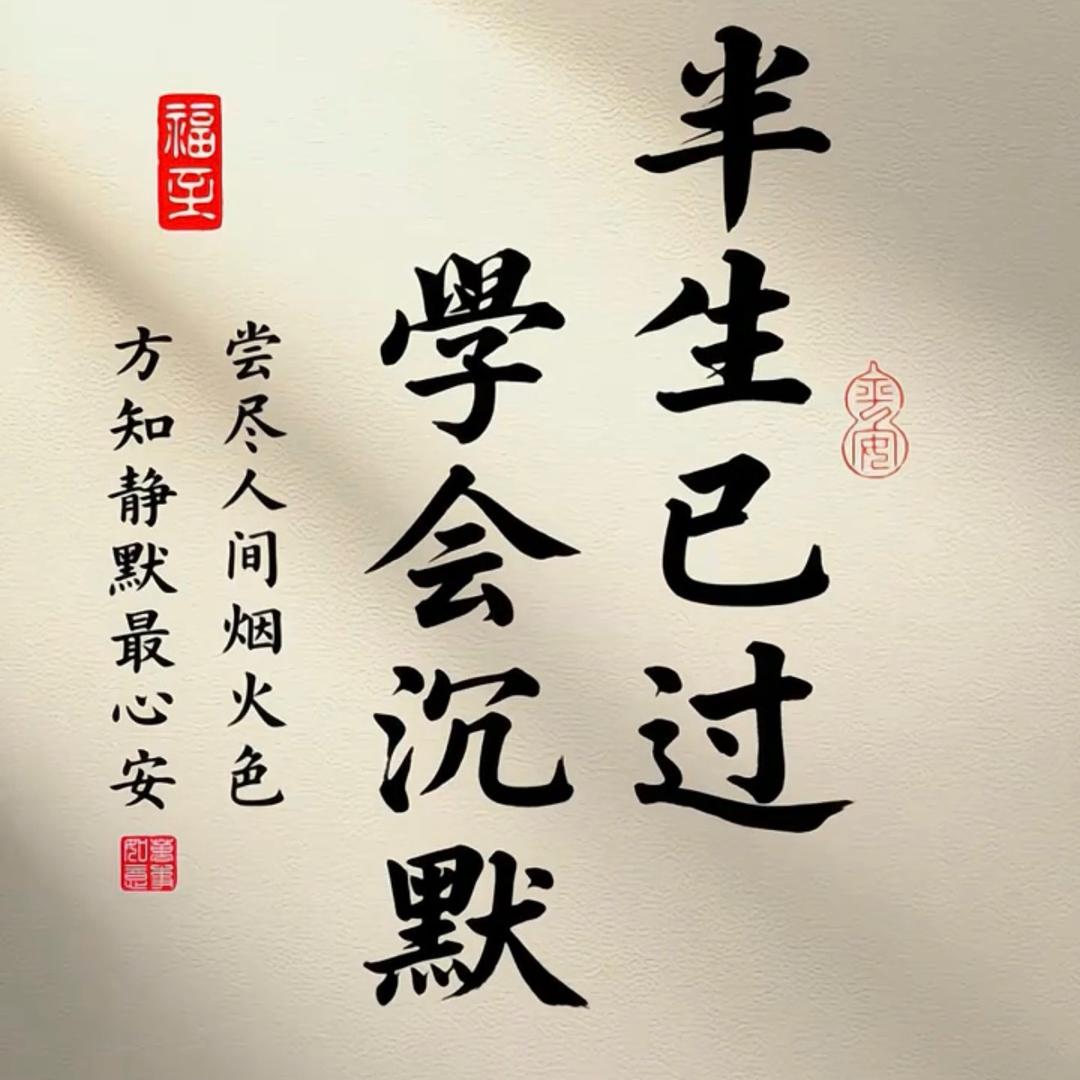 半生已过
學会沉默
尝尽人间烟火色
方知静默最心安
福至
平安
萬事如意